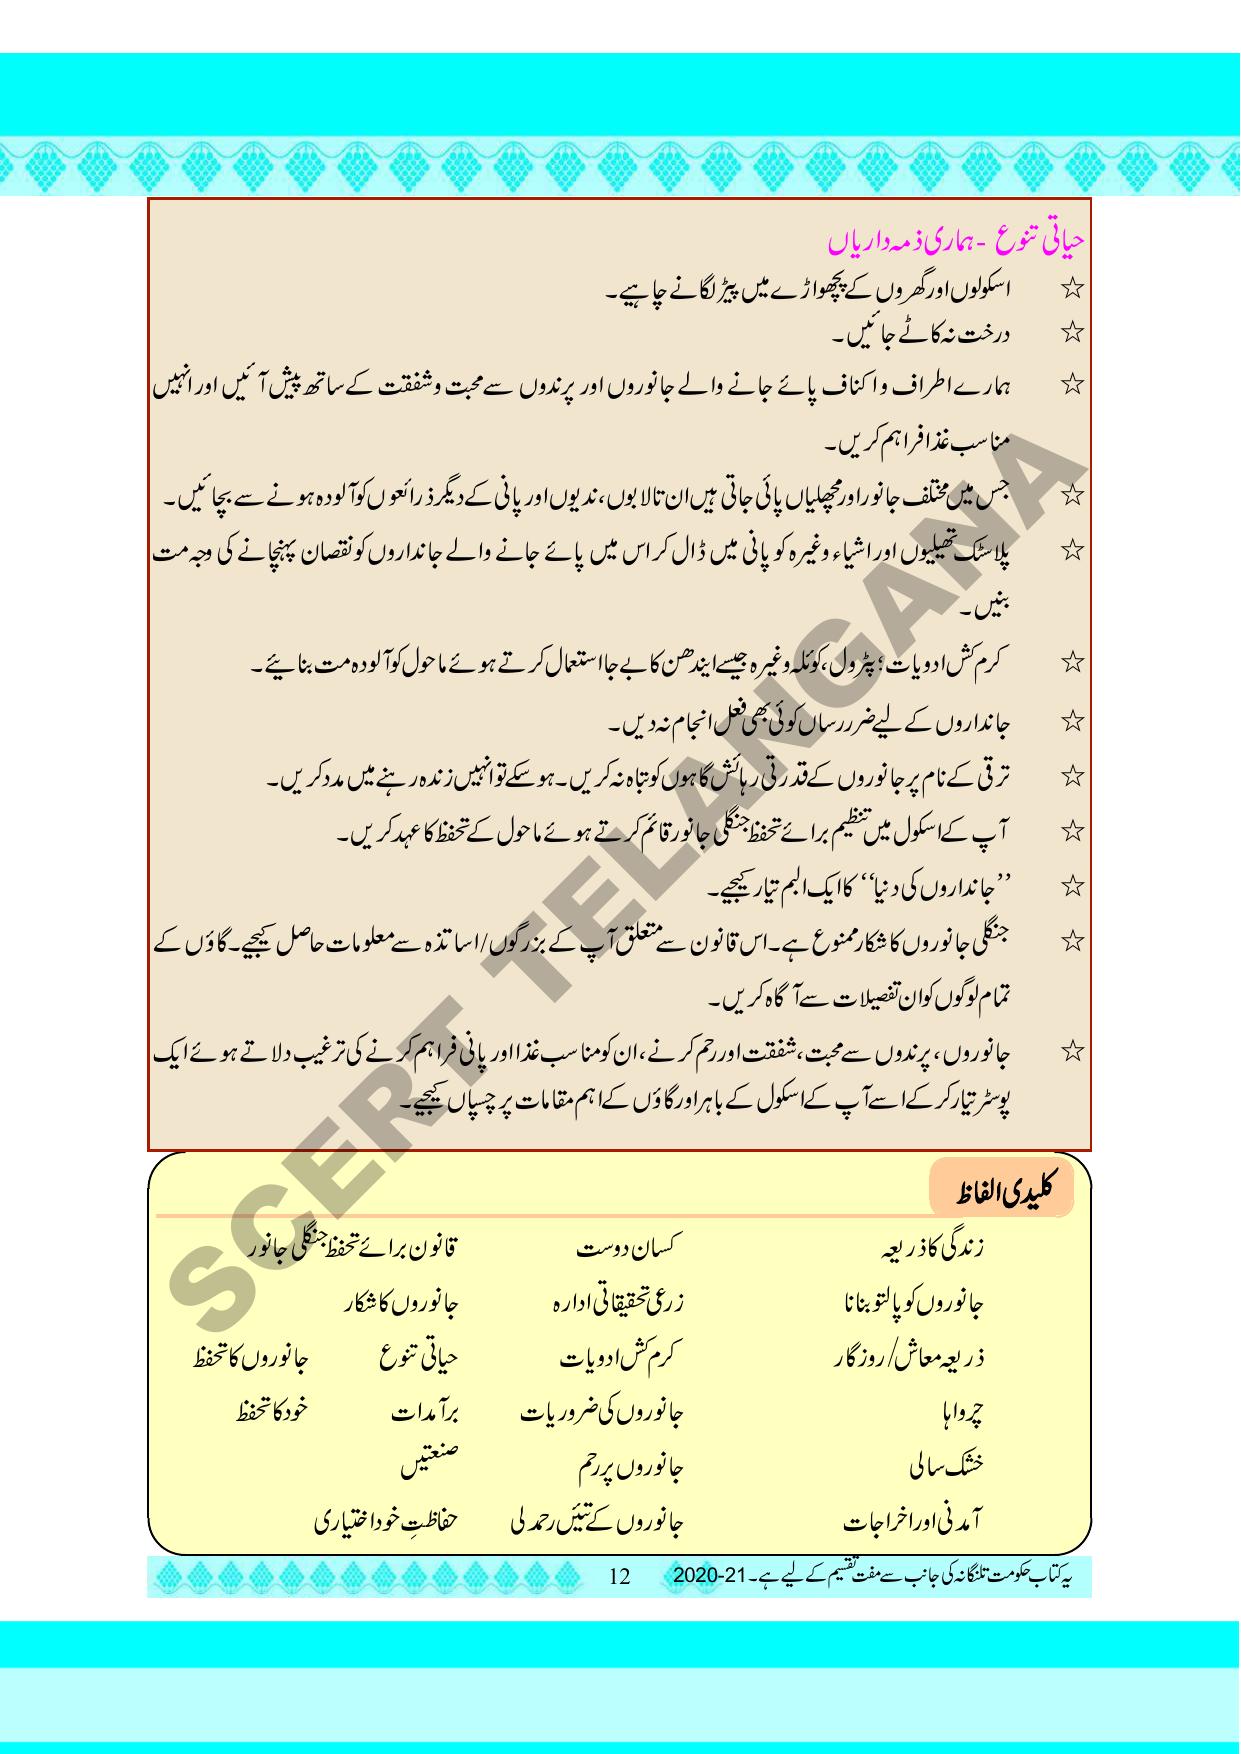 حیاتی تنوع - ہماری ذمہ داریاں
☆ اسکولوں اور گھروں کے پچھواڑے میں پیڑ لگانے چاہیے۔
☆ درخت نہ کاٹے جائیں۔
☆ ہمارے اطراف و اکناف پائے جانے والے جانوروں اور پرندوں سے محبت و شفقت کے ساتھ پیش آئیں اور انہیں
مناسب غذا فراہم کریں۔
☆ جس میں مختلف جانور اور مچھلیاں پائی جاتی ہیں ان تالابوں، ندیوں اور پانی کے دیگر ذرائعوں کو آلودہ ہونے سے بچائیں۔
☆ پلاسٹک تھیلیوں اور اشیاء وغیرہ کو پانی میں ڈال کر اس میں پائے جانے والے جانداروں کو نقصان پہنچانے کی وجہ مت
بنیں۔
☆ کرم کش ادویات؛ پٹرول، کوئلہ وغیرہ جیسے ایندھن کا بے جا استعمال کرتے ہوئے ماحول کو آلودہ مت بنایئے۔
☆ جانداروں کے لیے ضرر رساں کوئی بھی فعل انجام نہ دیں۔
☆ ترقی کے نام پر جانوروں کے قدرتی رہائش گاہوں کو تباہ نہ کریں۔ ہو سکے تو انہیں زندہ رہنے میں مدد کریں۔
☆ آپ کے اسکول میں تنظیم برائے تحفظ جنگلی جانور قائم کرتے ہوئے ماحول کے تحفظ کا عہد کریں۔
☆ ’’جانداروں کی دنیا‘‘ کا ایک البم تیار کیجیے۔
☆ جنگلی جانوروں کا شکار ممنوع ہے۔ اس قانون سے متعلق آپ کے بزرگوں/اساتذہ سے معلومات حاصل کیجیے۔ گاؤں کے
تمام لوگوں کو ان تفصیلات سے آگاہ کریں۔
☆ جانوروں، پرندوں سے محبت، شفقت اور رحم کرنے، ان کو مناسب غذا اور پانی فراہم کرنے کی ترغیب دلاتے ہوئے ایک
پوسٹر تیار کر کے اسے آپ کے اسکول کے باہر اور گاؤں کے اہم مقامات پر چسپاں کیجیے۔
SCERT TELANGANA
کلیدی الفاظ
زندگی کا ذریعہ کسان دوست قانون برائے تحفظ جنگلی جانور
جانوروں کو پالتو بنانا زرعی تحقیقاتی ادارہ جانوروں کا شکار
ذریعہ معاش/روزگار کرم کش ادویات حیاتی تنوع جانوروں کا تحفظ
چرواہا جانوروں کی ضروریات برآمدات خود کا تحفظ
خشک سالی جانوروں پر رحم صنعتیں
آمدنی اور اخراجات جانوروں کے تئیں رحمدلی حفاظتِ خود اختیاری
یہ کتاب حکومت تلنگانہ کی جانب سے مفت تقسیم کے لیے ہے۔ 2020-21 12